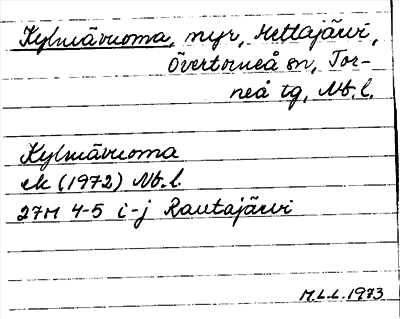 Kylmävuoma, myr, Hettajärvi,
Övertorneå sn, Tor-
neå tg, Nb.l.
Kylmävuoma
ek (1972) Nb.l.
27M 4-5 i-j Rautajärvi
M.L.L. 1973